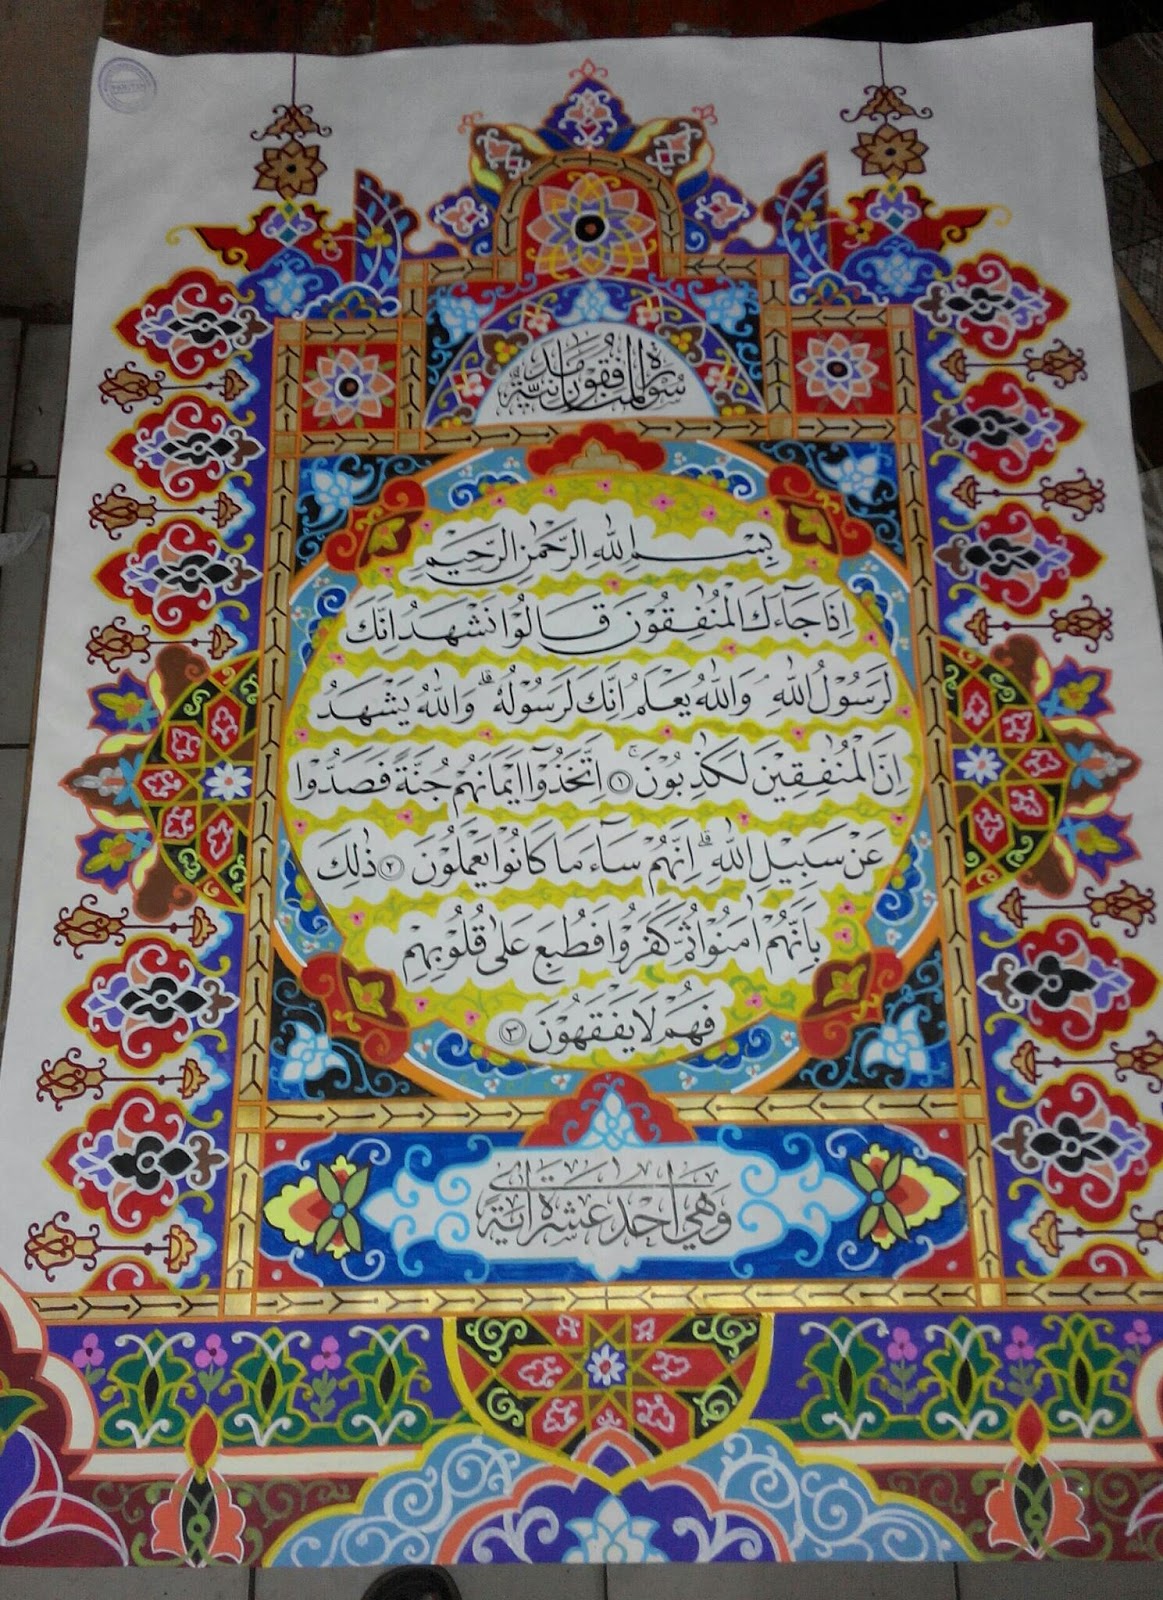 سُوْرَةُ الْمُنٰفِقُوْنَ مَدَنِيَّةٌ
بِسْمِ اللّٰهِ الرَّحْمٰنِ الرَّحِيْمِ
اِذَا جَآءَكَ الْمُنٰفِقُوْنَ قَالُوْا نَشْهَدُ اِنَّكَ
لَرَسُوْلُ اللّٰهِ ۘ وَاللّٰهُ يَعْلَمُ اِنَّكَ لَرَسُوْلُهٗ ۗ وَاللّٰهُ يَشْهَدُ
اِنَّ الْمُنٰفِقِيْنَ لَكٰذِبُوْنَ ۚ ﴿١﴾ اِتَّخَذُوْٓا اَيْمَانَهُمْ جُنَّةً فَصَدُّوْا
عَنْ سَبِيْلِ اللّٰهِ ۗ اِنَّهُمْ سَآءَ مَا كَانُوْا يَعْمَلُوْنَ ﴿٢﴾ ذٰلِكَ
بِاَنَّهُمْ اٰمَنُوْا ثُمَّ كَفَرُوْا فَطُبِعَ عَلٰى قُلُوْبِهِمْ
فَهُمْ لَا يَفْقَهُوْنَ ﴿٣﴾
وَهِيَ اَحَدَ عَشْرَةَ اٰيَةً